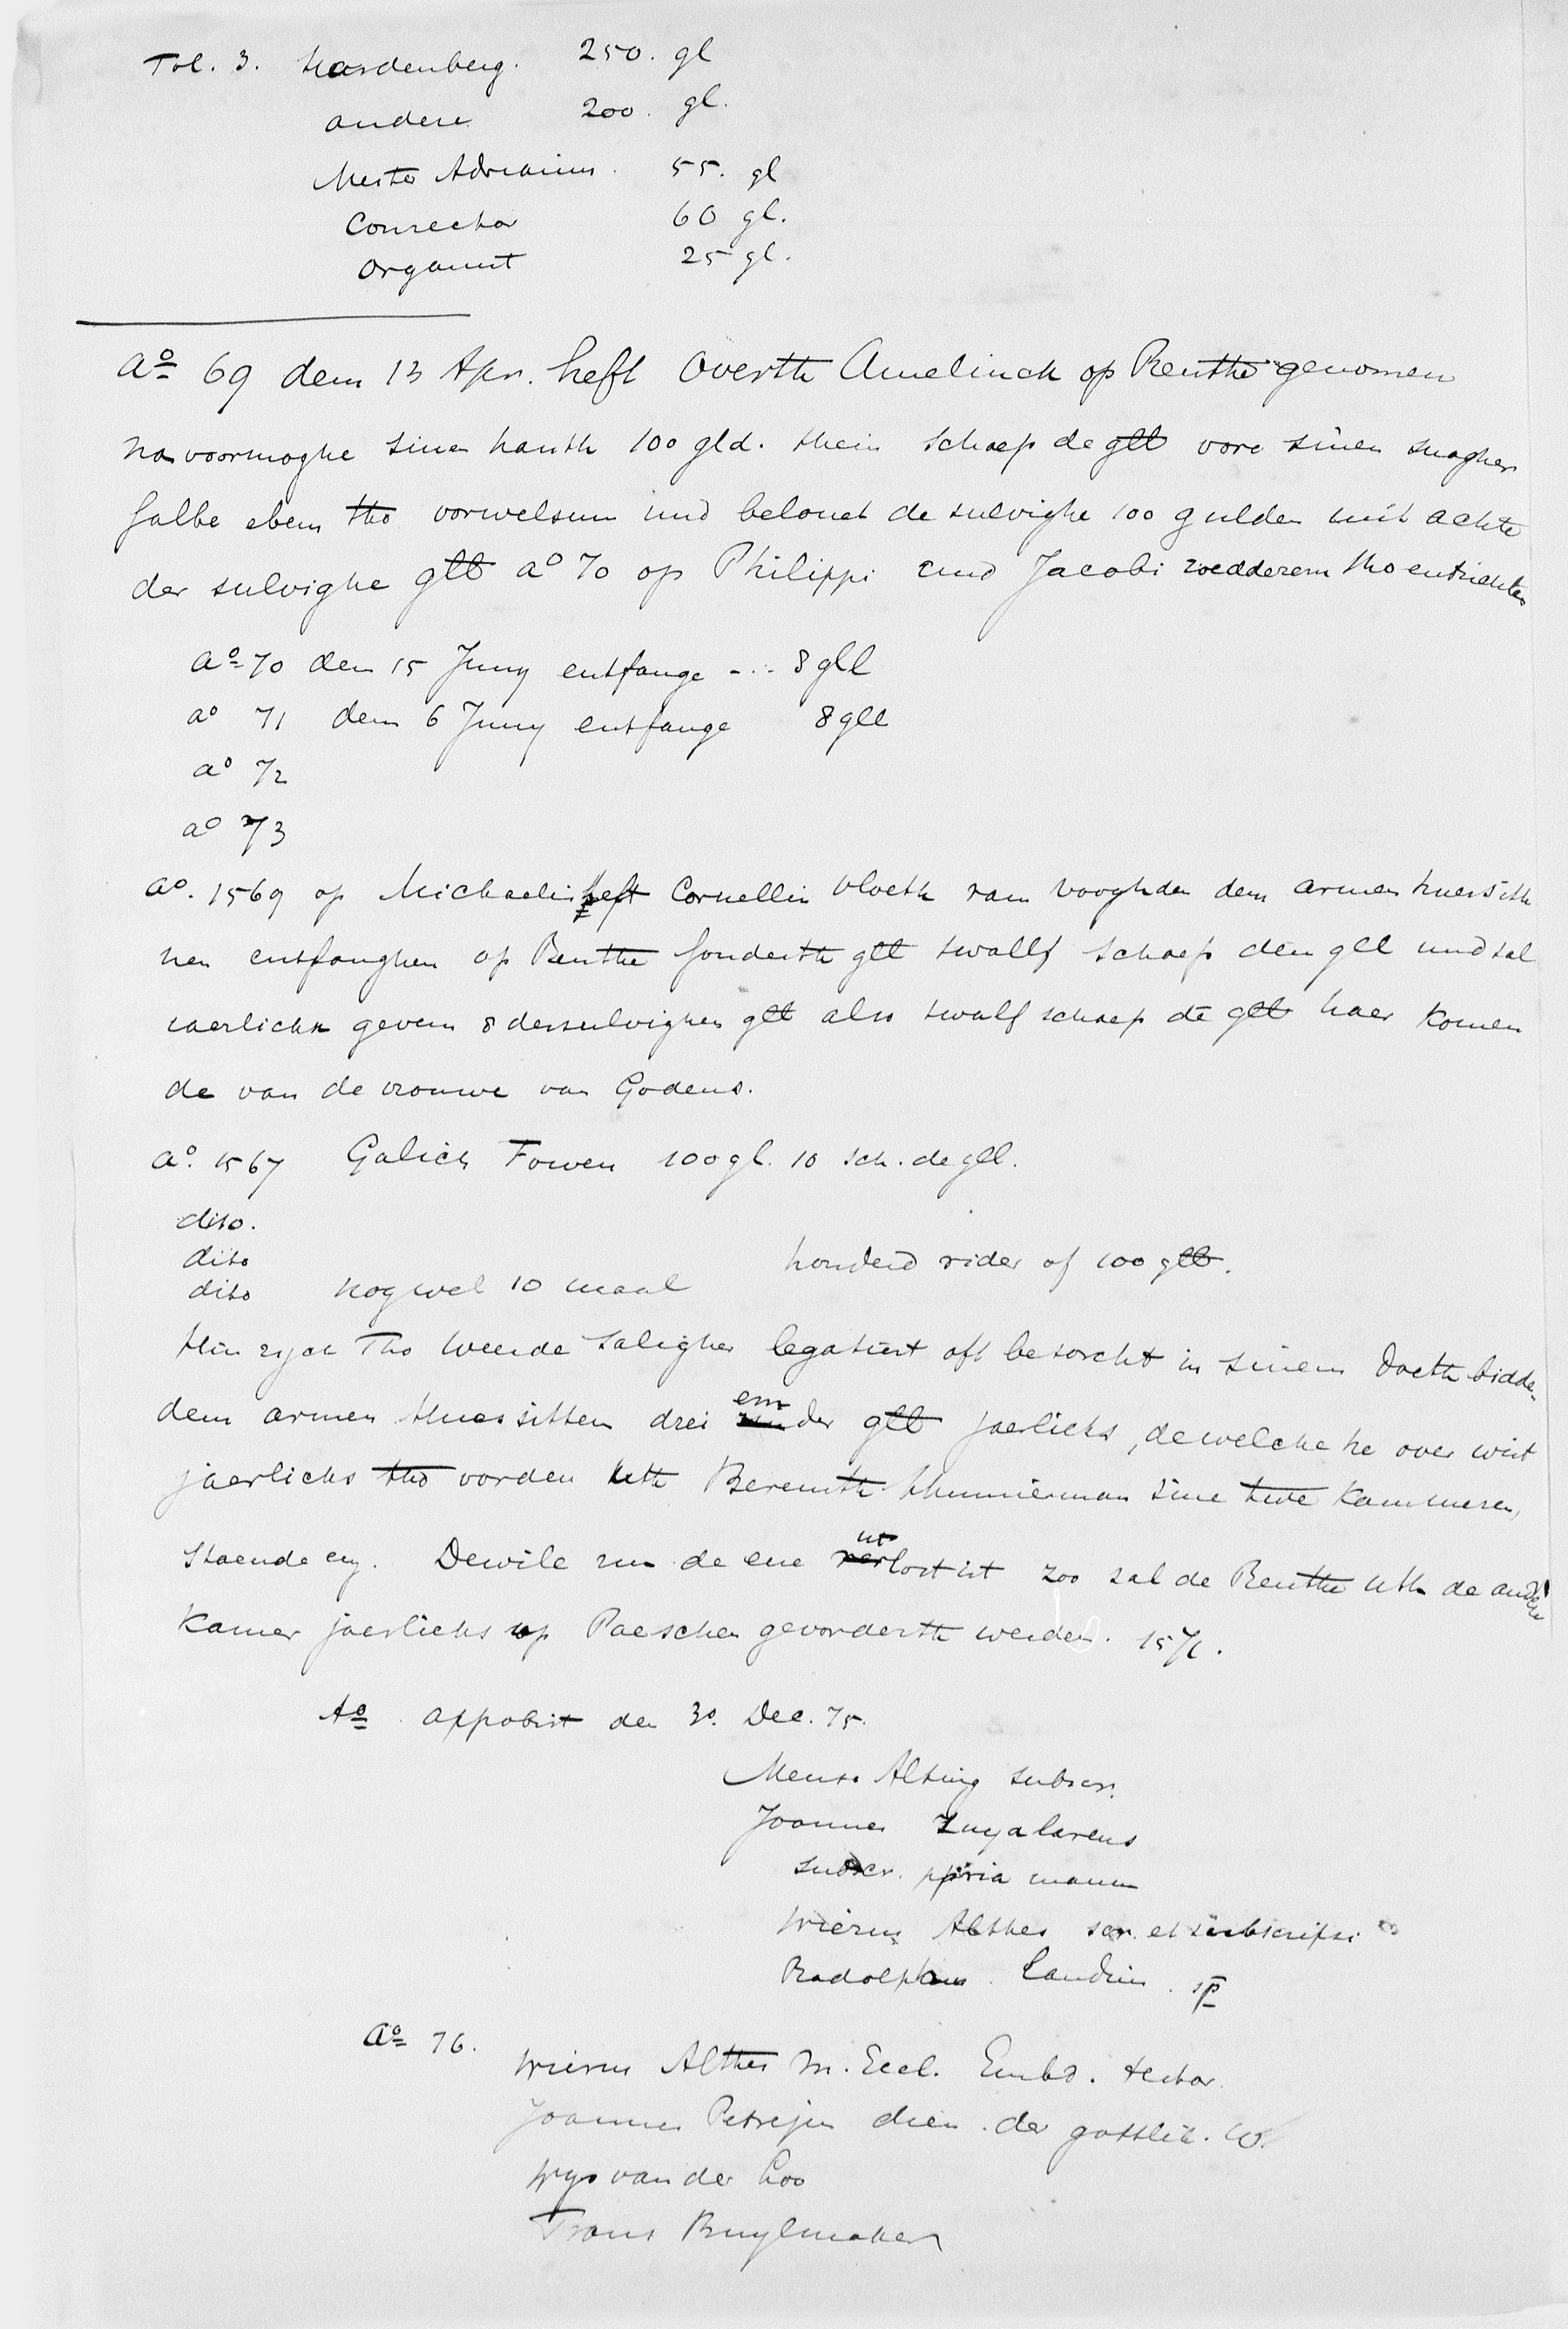 Fol. 3. Hardenberg. 250. gl
andere 200. gl.
Mester Adrianus. 55. gl
Conrector 60 gl.
Organist 25 gl.
aº 69 dem 13 Apr. heft Overth Amelinck op Renthe genomen
na voormoghe siner hanth 100 gld. thein schaep de gll vore sinen swagher
halbe eben tho vorwelsum und belouet de sulvighe 100 gulden mit achte
der sulvighe gll aº 70 op Philippi und Jacobi wedderem tho entrichten
aº 70 den 15 Juny entfange - . . . 8 gll
aº 71 dem 6 Juny entfange 8 gll
aº 72
aº 73
aº. 1569 op Michaelis heft Cornellis Vloeth van vooghden dem armen huersitth
nen entfanghen op Renthe honderth gll twallf schaep den gll und sal
iaerlichs geven 8 dersulvighen gll also twalf schaep de gll haer komen
de van de vrouwe van Godens.
aº. 1567 Galich Fowen 100 gl. 10 sch. de gll.
dito.
dito honderd rider of 100 gll.
dito nog wel 10 maal
Hinrijck Tho Weende saligher legatiert oft besorcht in sinem Doeth bidde
dem armen Huessitten drei emder gll jaerlichs, de welcke he over wist
jaerlichs tho vorden uth Berenth Hunnieman sine twe kammeren,
staende ey. Dewile nu de ene utlost ist zoo sal de Renthe uth de andere
kamer jaerlichs up Paeschen gevorderth werden. 1571.
Aº approbirt den 30. Dec. 75.
Menso Alting subscr.
Joannes Zuyalarens
subscr. ppria manu
Wierus Althes scr. et subscripsi
Rodolphus Landius sp
Aº 76.
Wierus Althes M. Eccl. Embd. testor
Joannes Petrejus dien. der gottlik. W.
Wyo van der Loo
Frans Buylmaker